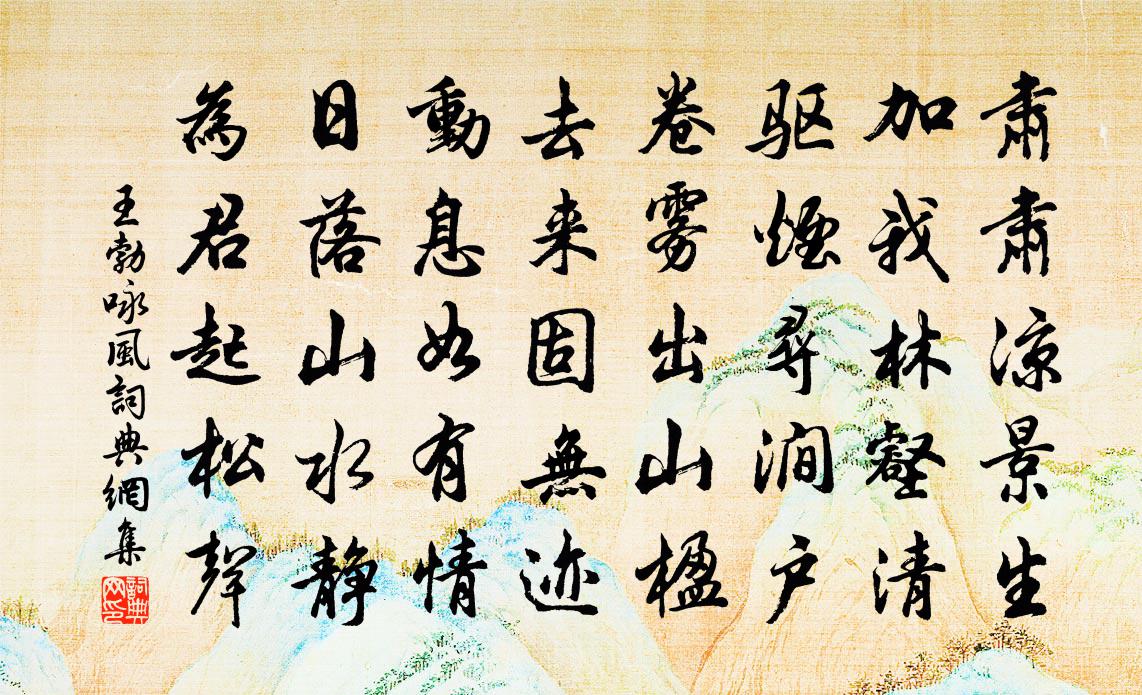 肃肃凉景生
加我林壑清
驱煙尋涧户
卷雾出山楹
去来固無迹
動息如有情
日落山水静
為君起松聲
王勃咏風詞典網集
詞典网印